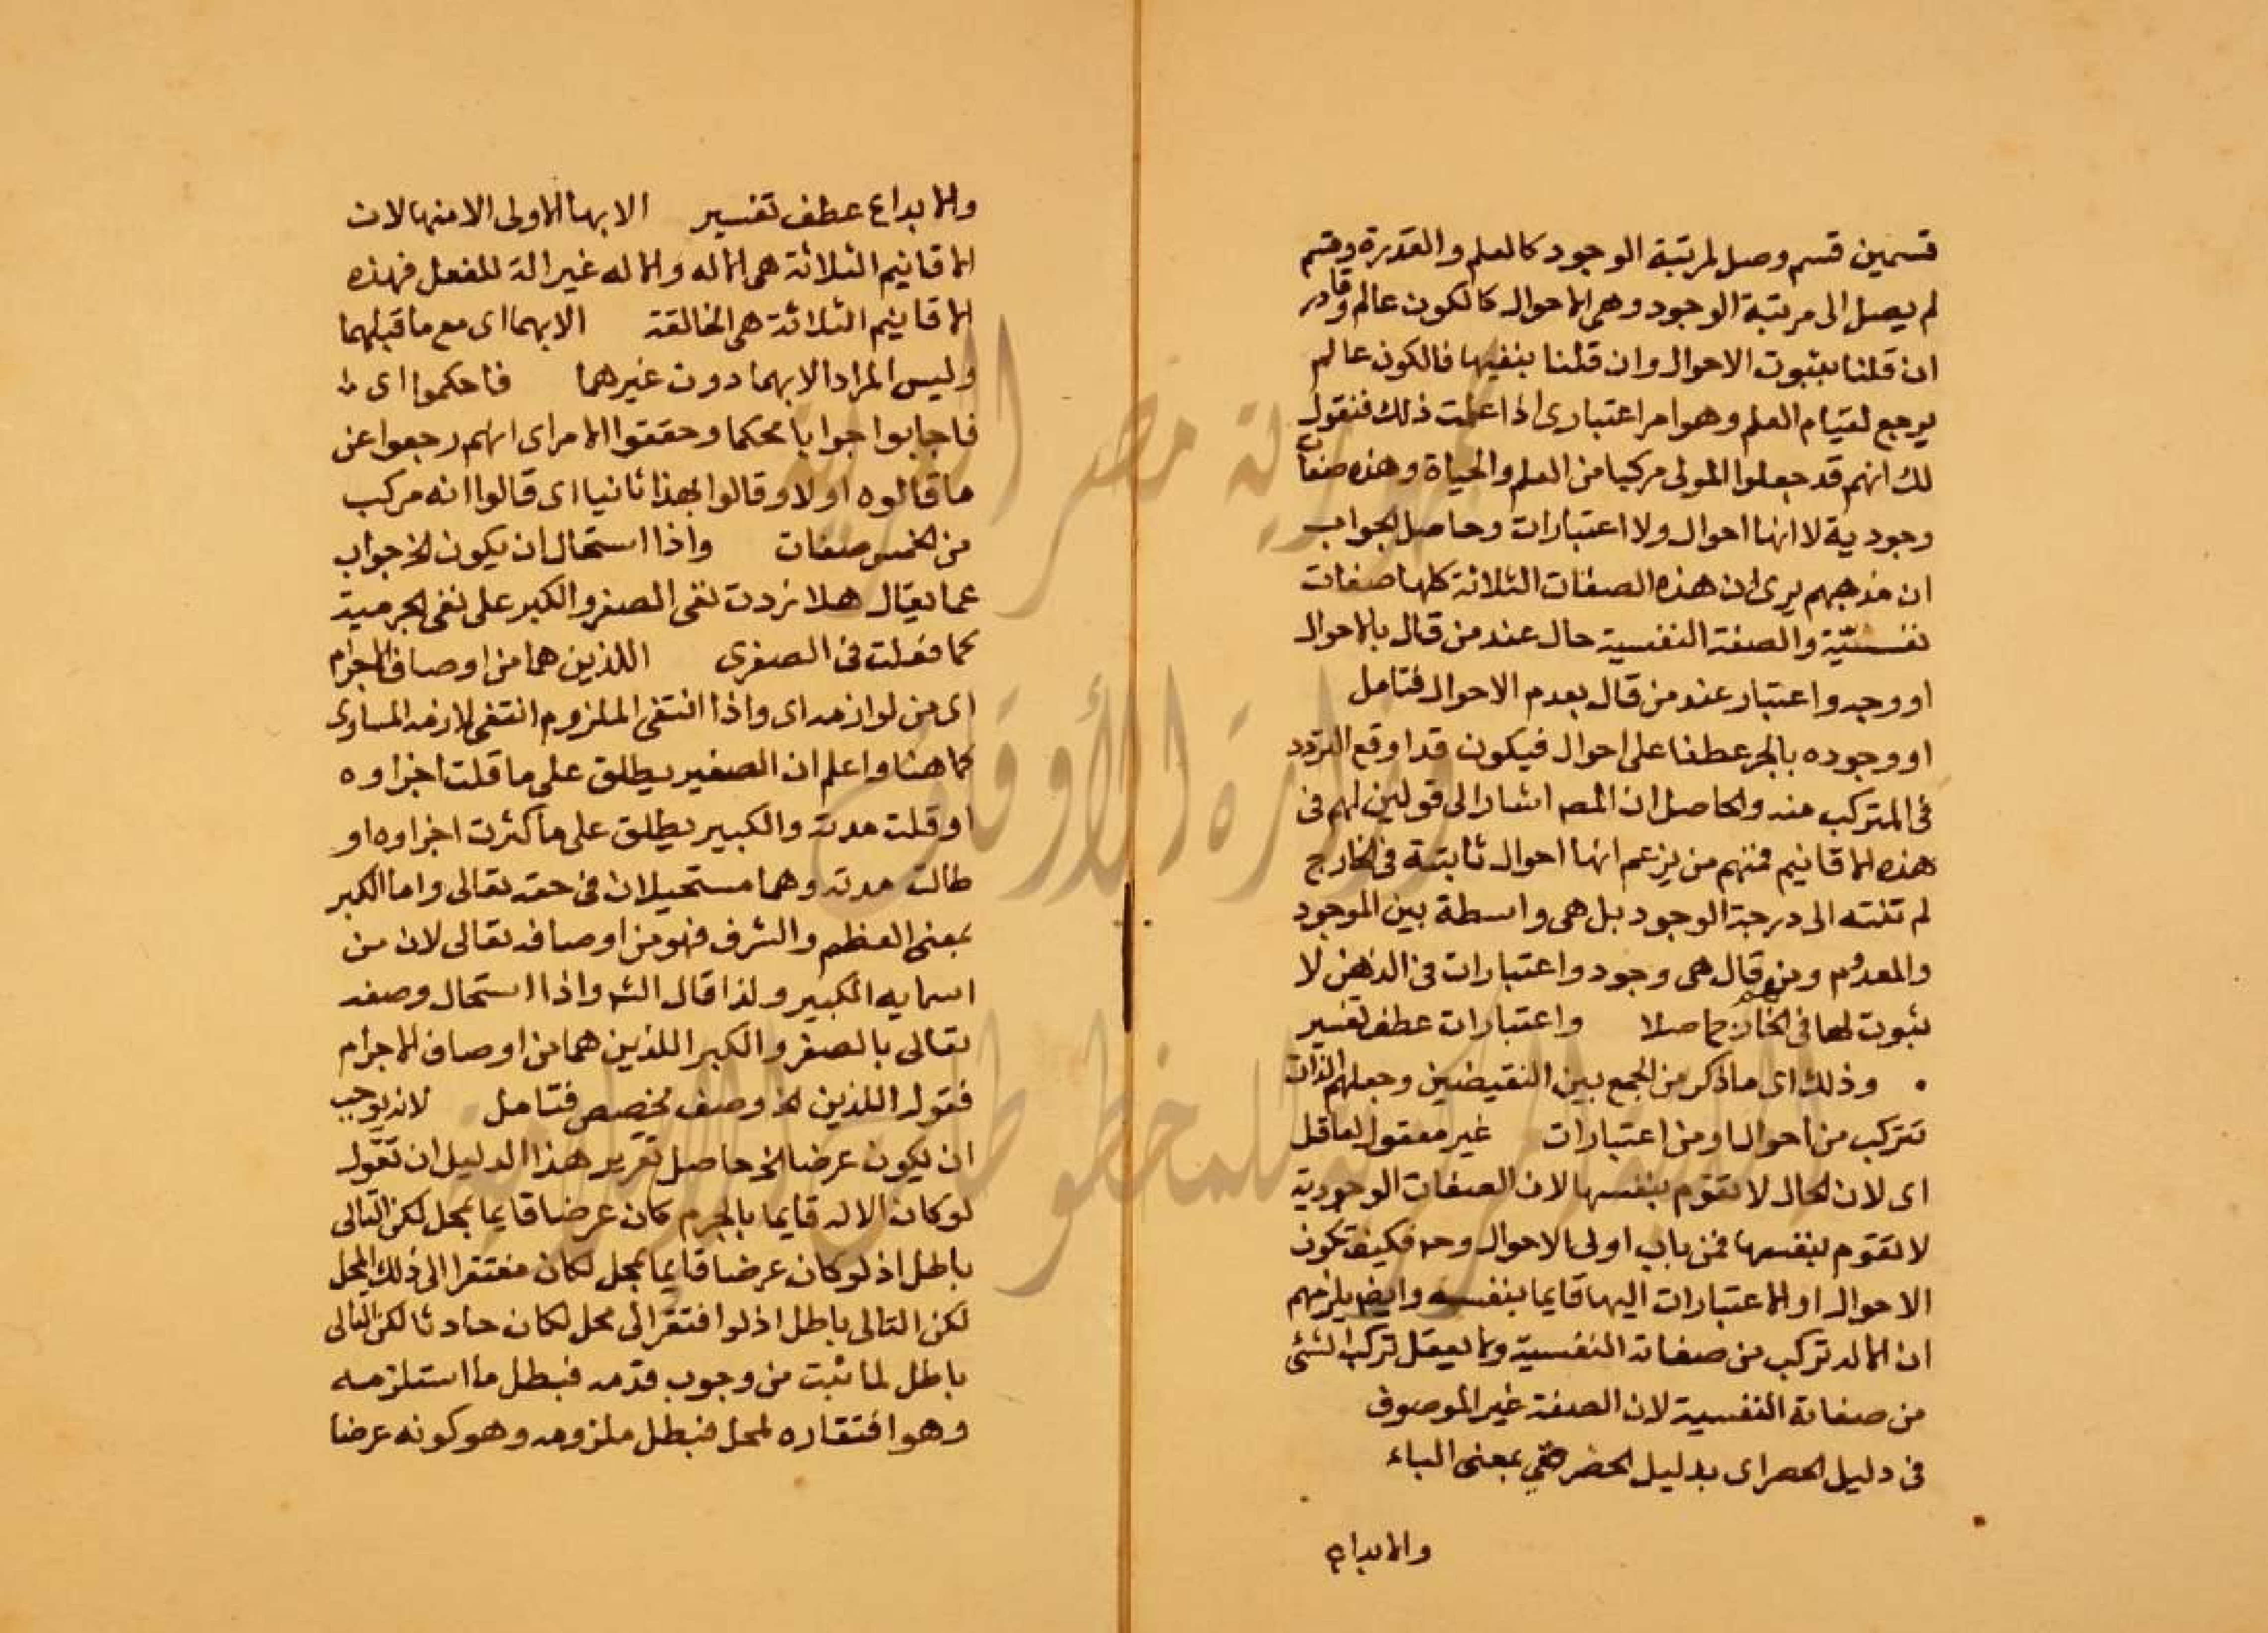 قسمين قسم وصل لمرتبة الوجود كالعلم والقدرة وقسم
لم يصل الى مرتبة الوجود وهى الاحوال كالكون عالم وقادر
ان قلنا بثبوت الاحوال وان قلنا بنفيها فالكون عالم
يرجع لقيام العلم وهو امر اعتبارى اذا علمت ذلك فنقول
لك انهم قد جعلوا المولى مركبا من العلم والحياة وهذه صفات
وجودية لا انها احوال ولا اعتبارات وحاصل الجواب
ان مذهبهم يرى ان هذه الصفات الثلاثة كلها صفات
نفسيّة والصفة النفسية حال عند من قال بالاحوال
او وجه واعتبار عند من قال بعدم الاحوال فتامل
او وجوده بالجر عطفا على احوال فيكون قد اوقع التردد
فى المتركب منه والحاصل ان المصـ اشار الى قولين لهم فى
هذه الاقانيم فمنهم من يزعم انها احوال ثابتة فى الخارج
لم تنته الى درجة الوجود بل هى واسطة بين الموجود
والمعدوم ومنهم من قال هى وجوه واعتبارات فى الذهن لا
ثبوت لها فى الخارج اصلا واعتبارات عطف تفسير
وذلك اى ما ذكر من الجمع بين النقيضين وجعلهم الذات
تتركب من احوال او من اعتبارات غير معقول لعاقل
اى لان الحال لا تقوم بنفسها لان الصفات الوجودية
لا تقوم بنفسها فمن باب اولى الاحوال وحـ فكيف تكون
الاحوال او الاعتبارات اليها قايما بنفسه وايضـ يلزمهم
ان الاله تركب من صفاته النفسية ولا يعقل تركب الشئ
من صفاته النفسية لان الصفة غير الموصوف
فى دليل الحصر اى بدليل الحصر ففى بمعنى الباء
والابداع
والابداع عطف تفسير الا بها الاولى الا منها لان
الاقانيم الثلاثة هى الاله والاله غير الة للفعل فهذه
الاقانيم الثلاثة هى الخالقة الا بهما اى مع ما قبلهما
وليس المراد الا بهما دون غيرهما فاحكموا اى
فاجابوا جوابا محكما وحققوا الامر اى انهم رجعوا عن
ما قالوه اولا وقالوا بهذا ثانيا اى قالوا انه مركب
من الخمس صفات واذا استحال ان يكون الخ جواب
عما يقال هلا زدت نفى الصغر والكبر على نفى الجرمية
كما فعلت فى الصغرى اللذين هما من اوصاف الاجرام
اى من لوازمه اى واذا انتفى الملزوم انتفى لازمه المساوى
كما هنا واعلم ان الصغير يطلق على ما قلت اجزاوه
او قلت مدته والكبير يطلق على ما كثرت اجزاوه او
طالت مدته وهما مستحيلان فى حقه تعالى واما الكبر
بمعنى العظم والشرف فهو من اوصافه تعالى لان من
اسمايه الكبير ولذا قال الشـ واذا استحال وصفه
تعالى بالصغر والكبر اللذين هما من اوصاف الاجرام
فقوله اللذين الخ وصف مخصص فتامل لانه يوجب
ان يكون عرضا الخ حاصل تقرير هذا الدليل ان تقول
لو كان الاله قايما بالجرم كان عرضا قايما بمحل لكن التالى
باطل اذ لو كان عرضا قايما بمحل لكان مفتقرا الى ذلك المحل
لكن التالى باطل اذ لو افتقر الى محل لكان حادثا لكن التالى
باطل لما ثبت من وجوب قدمه فبطل ما استلزمه
وهو افتقاره لمحل فبطل ملزومه وهو كونه عرضا